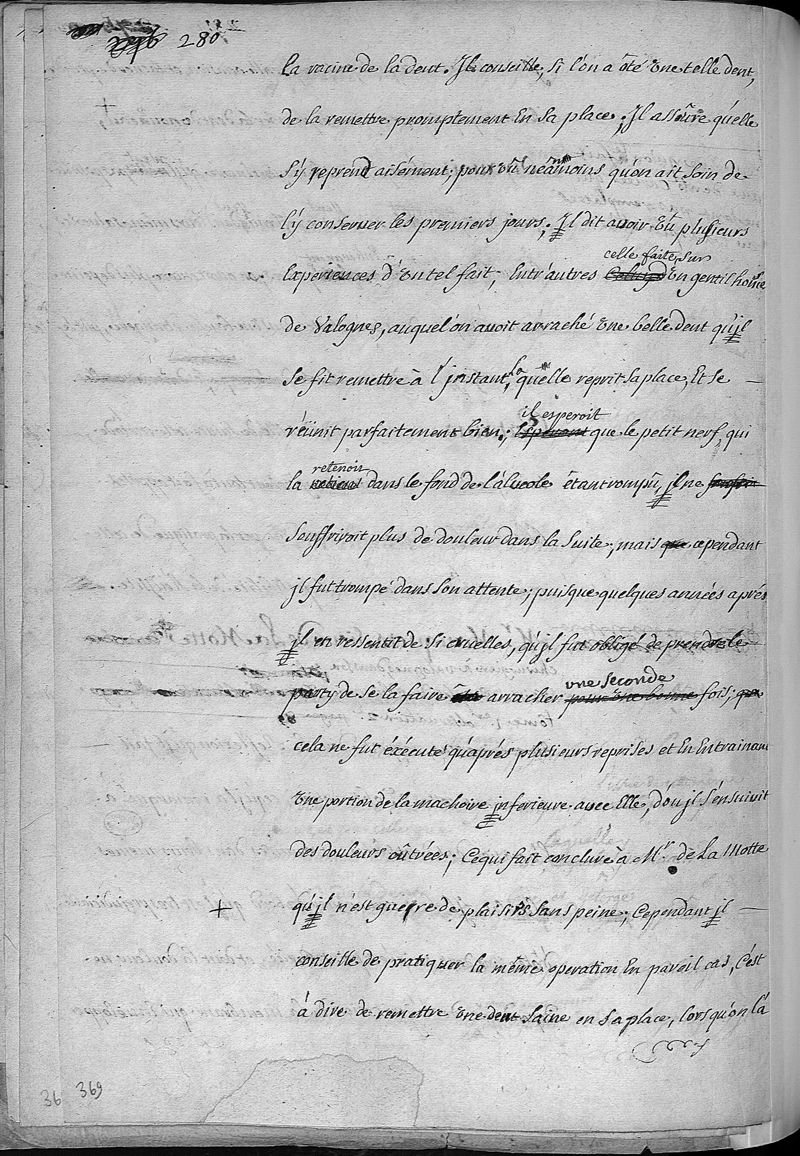 280
la racine de la dent. Il conseille, si l'on a ôté une telle dent,
de la remettre promptement En sa place; Il assûre qu'elle
s'y reprend aisément; pourvû néanmoins qu'on ait soin de
l'y conserver les premiers jours; Il dit avoir vû plusieurs
celle faite, sur
Expériences d'un tel fait, Entr'autres un gentil home
de Valognes, auquel on avoit arraché une belle dent qu'jl
se fit remettre à l'jnstant, laquelle reprit sa place, Et se
réünit parfaitement bien;
il esperoit
que le petit nerf, qui
retenoit
la dans le fond de l'alveole étant rompû, jl ne
souffriroit plus de douleur dans la suite; mais cependant
jl fut trompé dans son attente; puisque quelques années aprés
jl en ressentit de si cruelles, qu'jl fut obligé de prendre le
une seconde
party de se la faire arracher pour une bonne fois; que
cela ne fut éxécuté qu'aprés plusieurs reprises et En Entrainant
une portion de la machoire jnferieure avec Elle, d'ou jl s'ensuivit
des douleurs oûtrées; Ce qui fait conclure à Mr. de La Motte
+ qu'jl n'est guerre de plaisirs sans peine; Cependant jl
conseille de pratiquer la même operation En pareil cas, C'est
à dire de remettre une dent saine en sa place, lors qu'on l'a
36 369